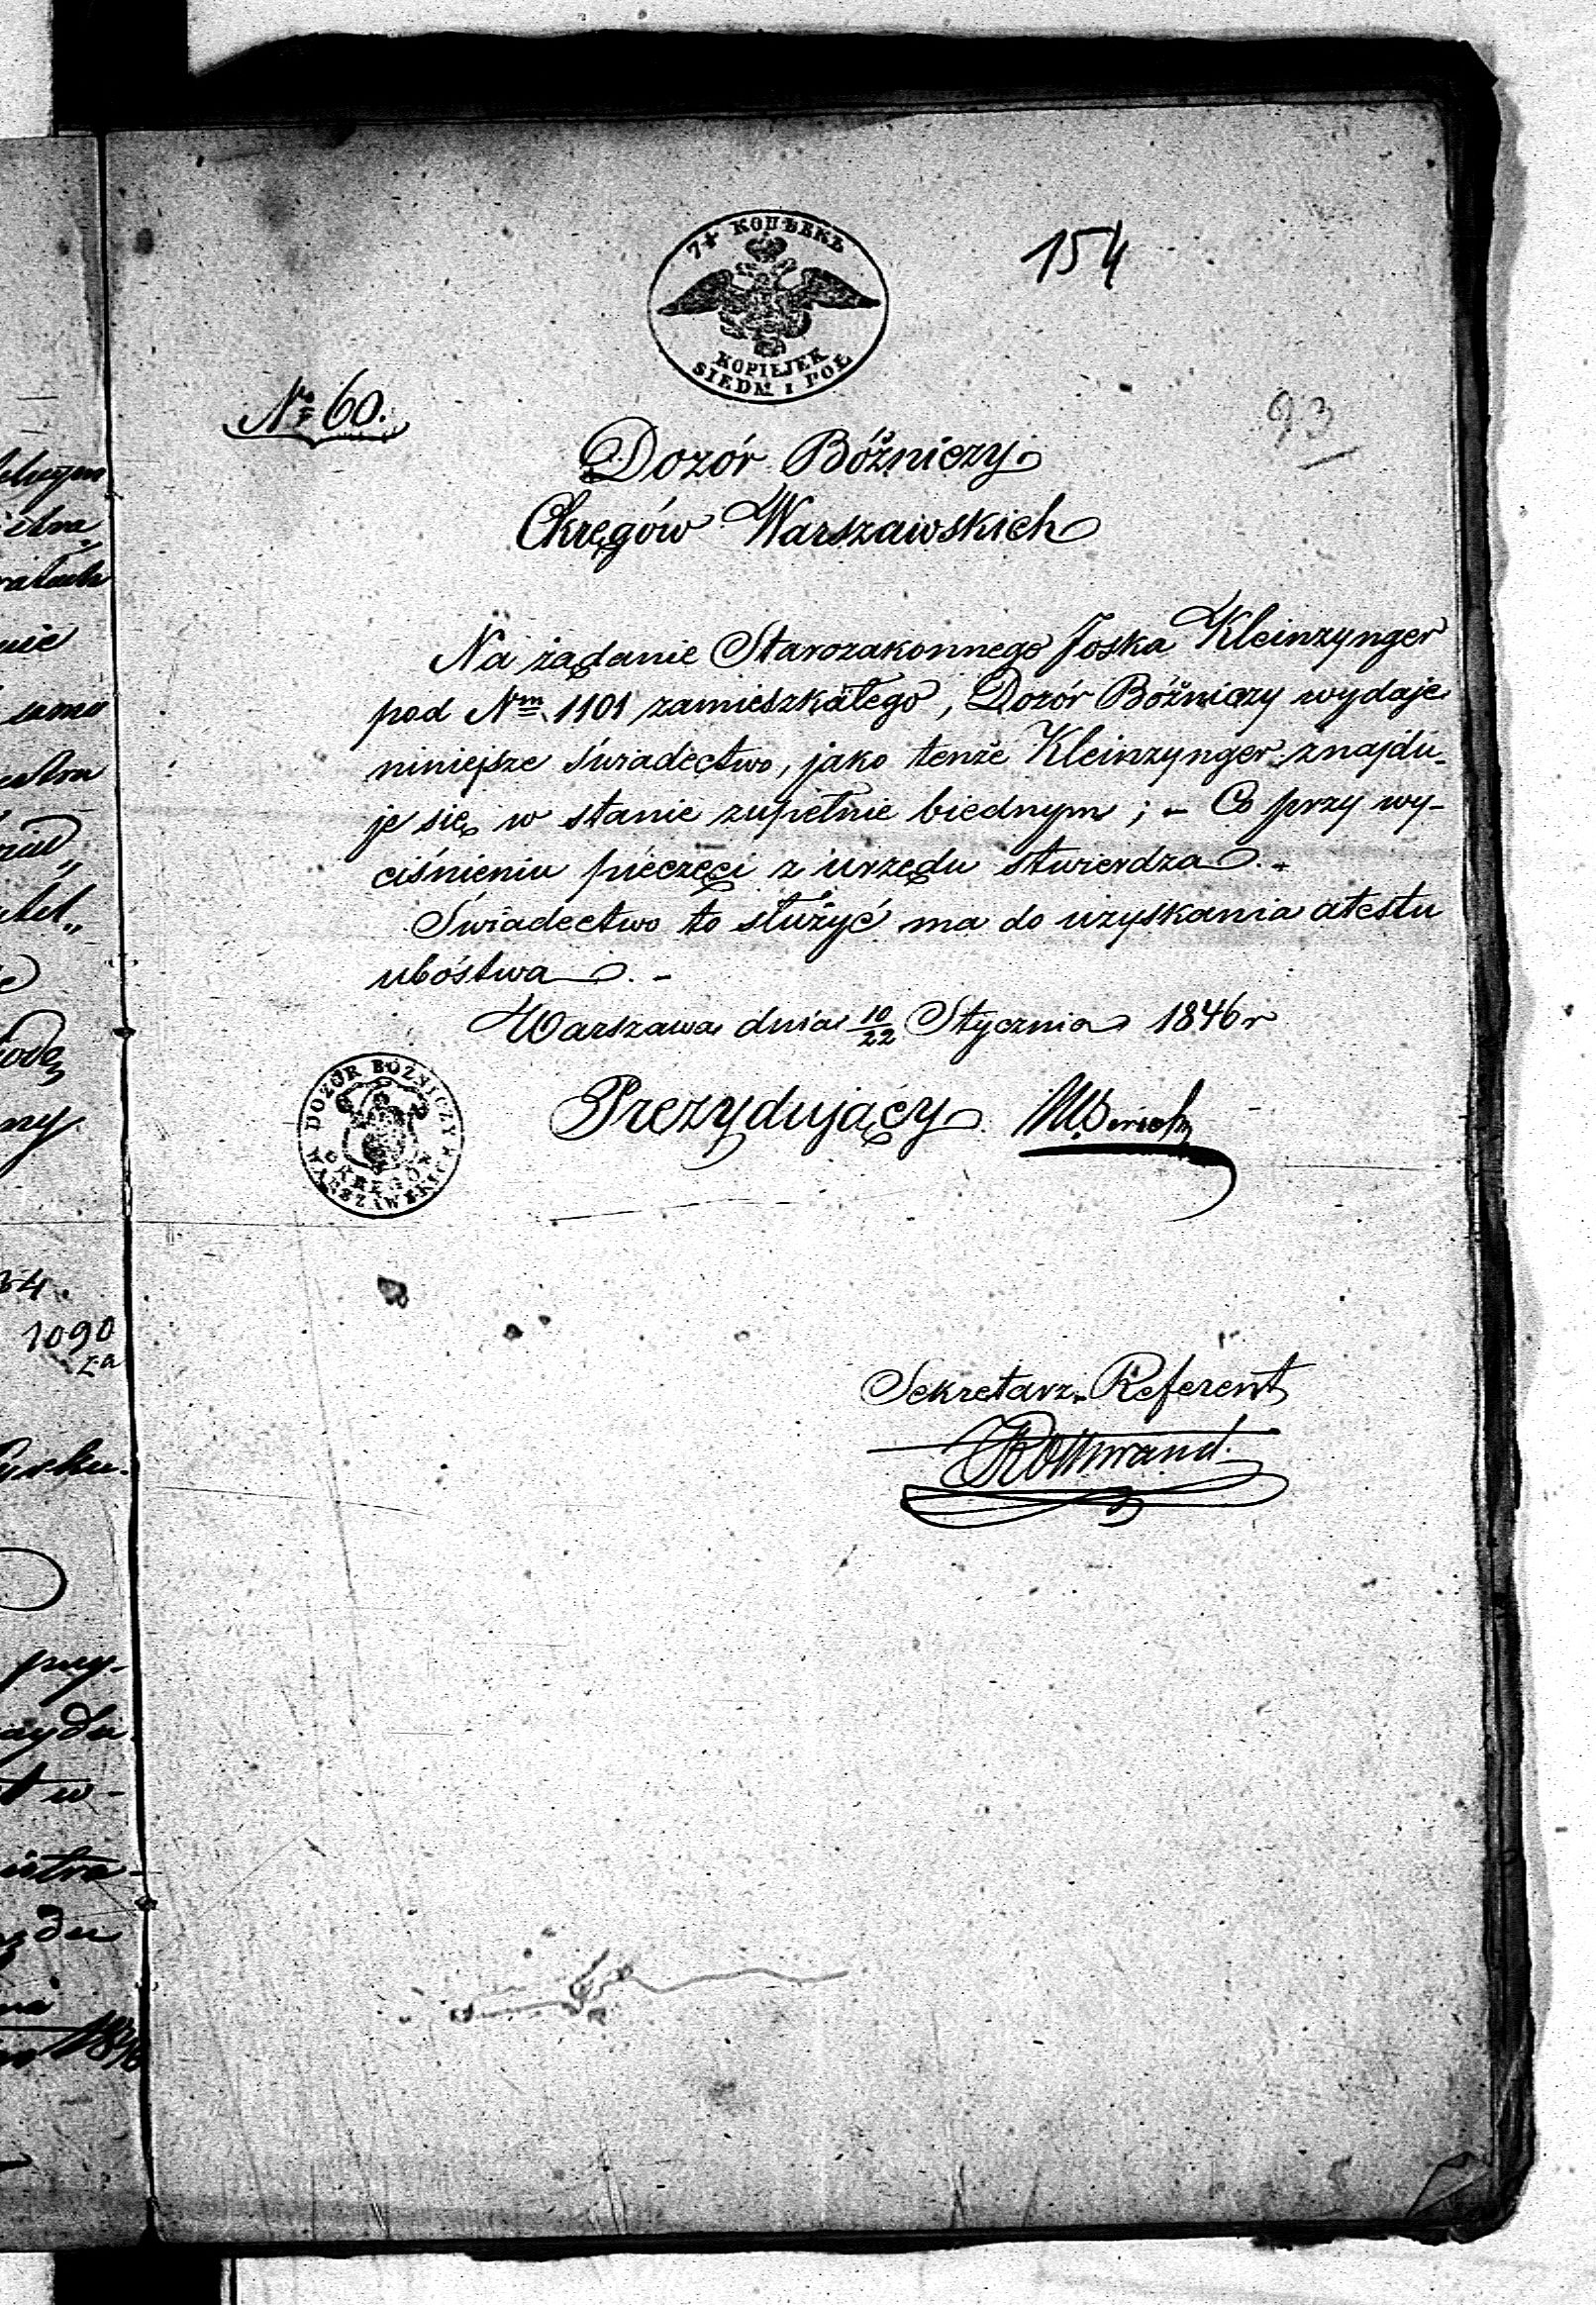 7½ КОПѢЕКЪ
KOPIEJEK
SIEDM I PÓŁ
154
№ 60.
93
Dozór Bóżniczy
Okręgów Warszawskich
Na żądanie Starozakonnego Joska Kleinzynger
pod Nm 1101 zamieszkałego, Dozór Bóżniczy wydaje
niniejsze świadectwo, jako tenże Kleinzynger znajdu-
je się w stanie zupełnie biednym; - Co przy wy-
ciśnieniu pieczęci z urzędu stwierdza. -
Świadectwo to służyć ma do uzyskania atestu
ubóstwa. -
Warszawa dnia 10/22 Stycznia 1846 r
DOZÓR BÓŻNICZY
OKRĘGÓW
WARSZAWSKICH
Prezydujący
Sekretarz Referent
Rottwand.
1090